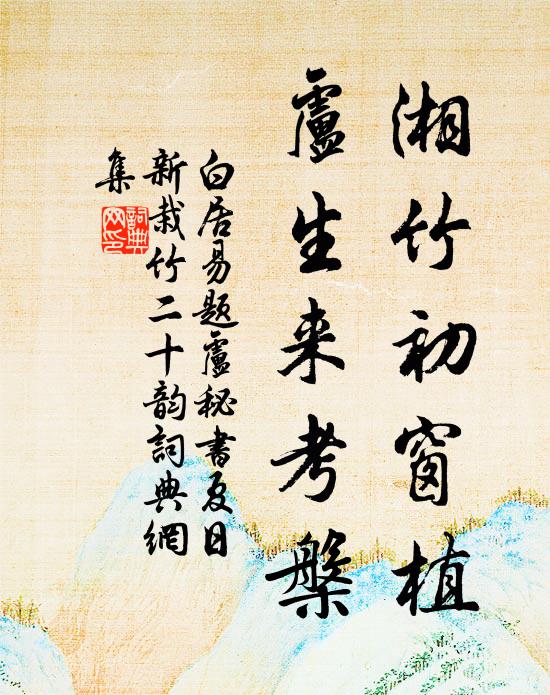 湘竹初窗植
盧生来考槃
白居易題盧秘書夏日
新栽竹二十韵詞典網
集
詞典
网印